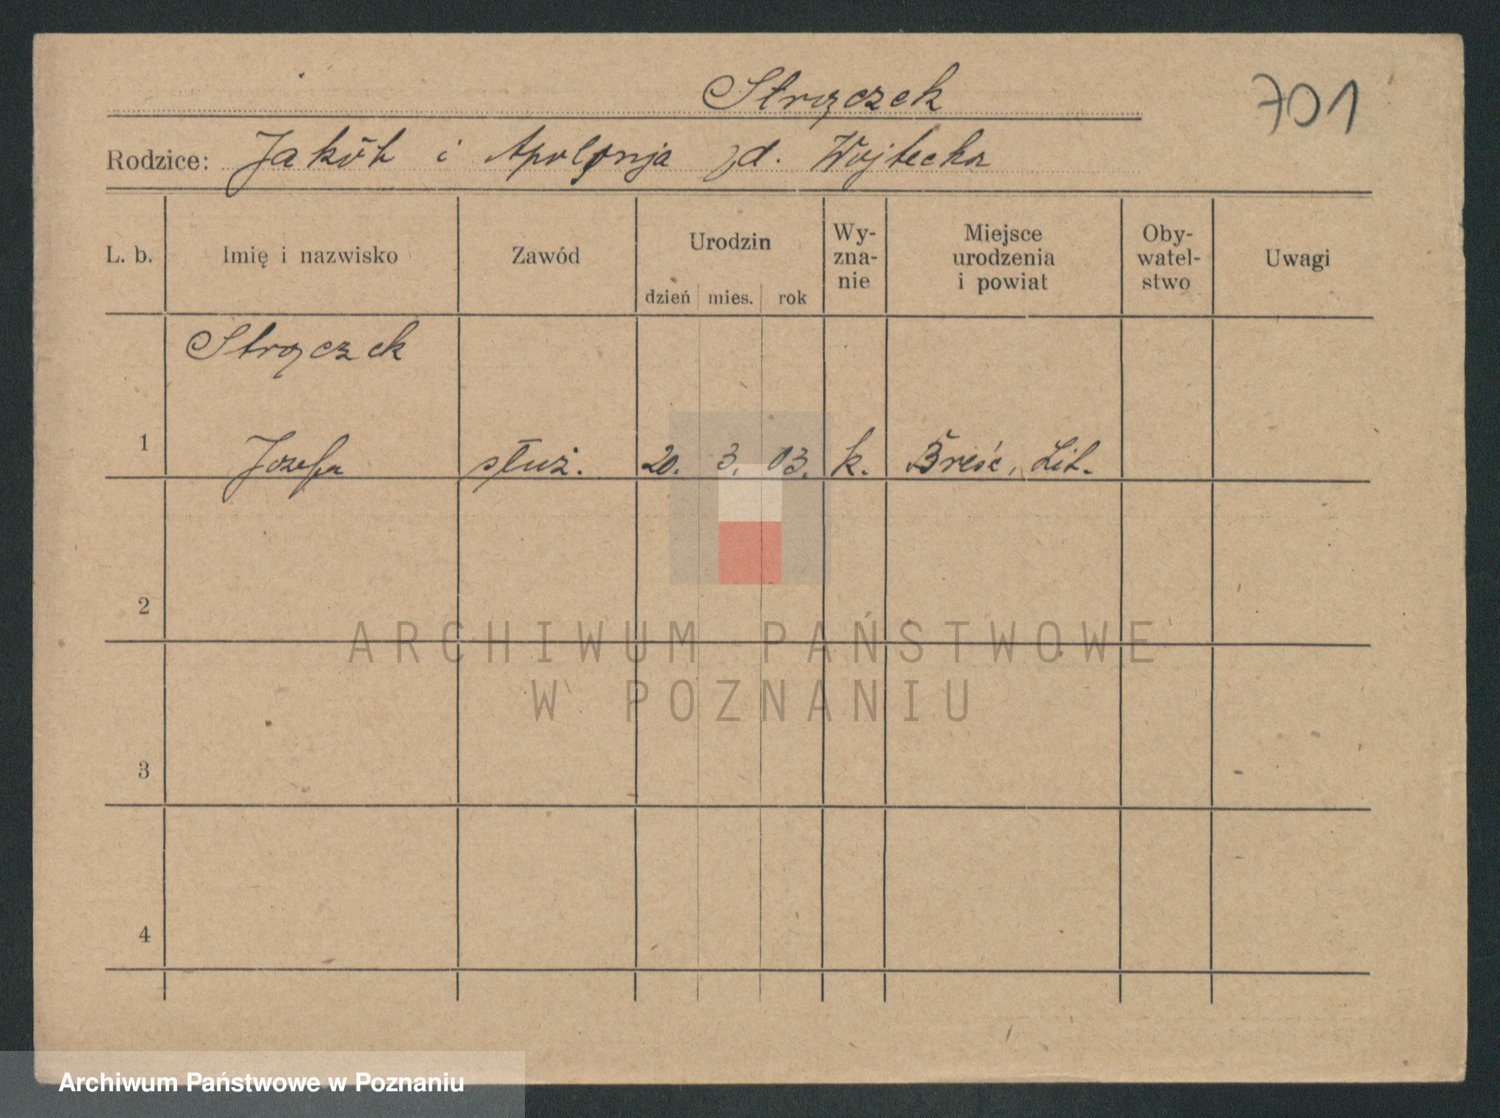 Strączek
701
Rodzice: Jakób i Apolonja zd. Wojtecka
L. b. Imię i nazwisko Zawód Urodzin Wy-
zna-
nie Miejsce
urodzenia
i powiat Oby-
watel-
stwo Uwagi
dzień mies. rok
Strączek
1 Józefa służ. 20. 3. 03. k. Breść, Lit.
2
ARCHIWUM PAŃSTWOWE
W POZNANIU
3
4
Archiwum Państwowe w Poznaniu